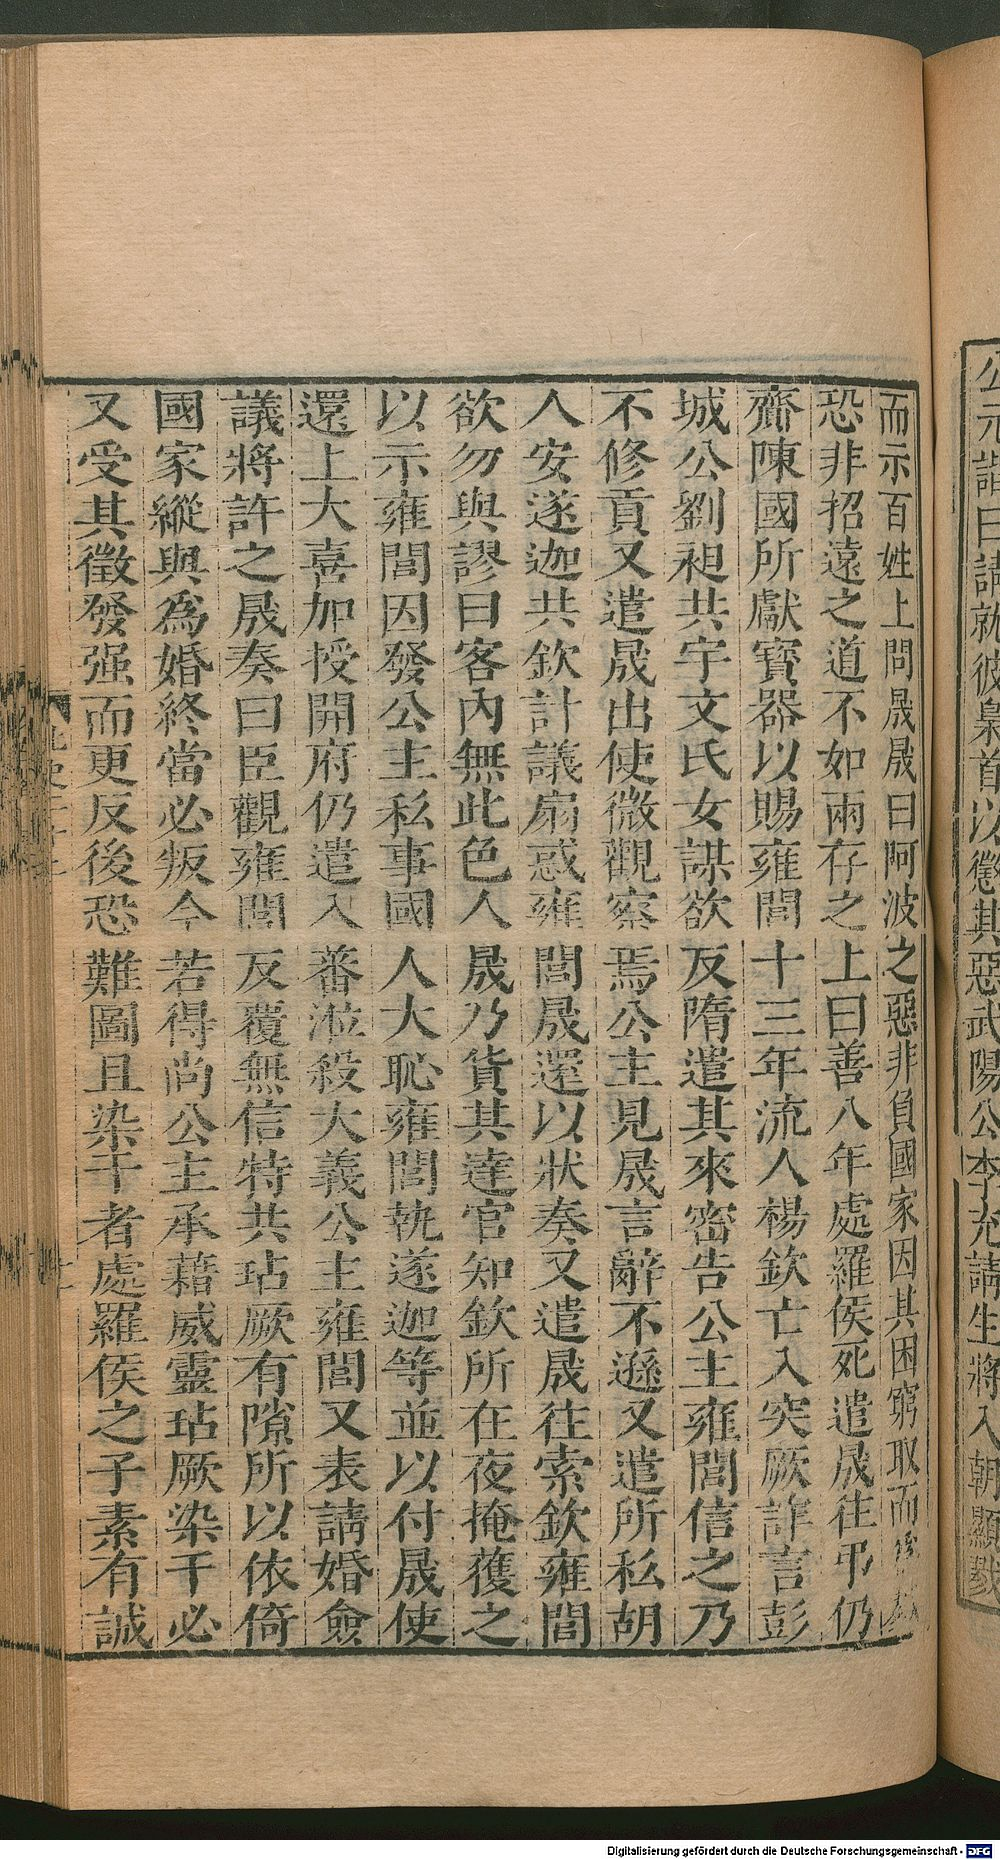 公元諧曰請就彼梟首以懲其惡武陽公李充請生將入朝顯戮
而示百姓上問晟晟曰阿波之惡非負國家因其困窮取而
恐非招遠之道不如兩存之上曰善八年處羅侯死遣晟往弔仍
齎陳國所獻寶器以賜雍閭十三年流人楊欽亡入突厥詐言彭
城公劉昶共宇文氏女謀欲反隋遣其來密告公主雍閭信之乃
不修貢又遣晟出使微觀察焉公主見晟言辭不遜又遣所私胡
人安遂迦共欽計議扇惑雍閭晟還以狀奏又遣晟往索欽雍閭
欲勿與謬曰客內無此色人晟乃貨其達官知欽所在夜掩獲之
以示雍閭因發公主私事國人大恥雍閭執遂迦等並以付晟使
還上大喜加授開府仍遣入蕃涖殺大義公主雍閭又表請婚僉
議將許之晟奏曰臣觀雍閭反覆無信特共玷厥有隙所以依倚
國家縱與爲婚終當必叛今若得尚公主承藉威靈玷厥染干必
又受其徵發强而更反後恐難圖且染干者處羅侯之子素有誠
Digitalisierung gefördert durch die Deutsche Forschungsgemeinschaft - DFG